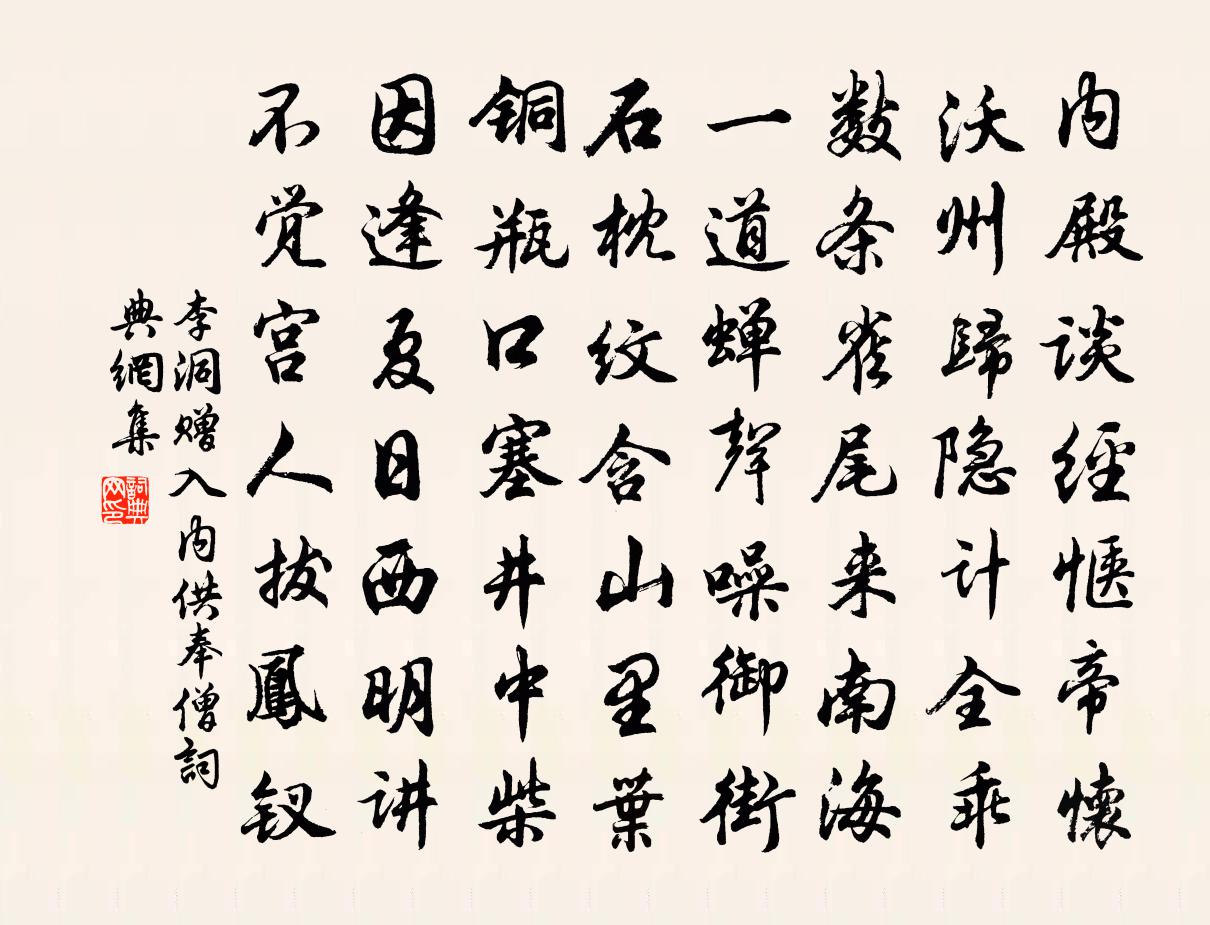 内殿谈經惬帝懷
沃州歸隐计全乖
数条雀尾来南海
一道蝉聲噪御街
石枕纹含山里葉
铜瓶口塞井中柴
因逢夏日西明讲
不觉宫人拔鳳钗
李洞赠入内供奉僧詞
典網集
詞典
网印